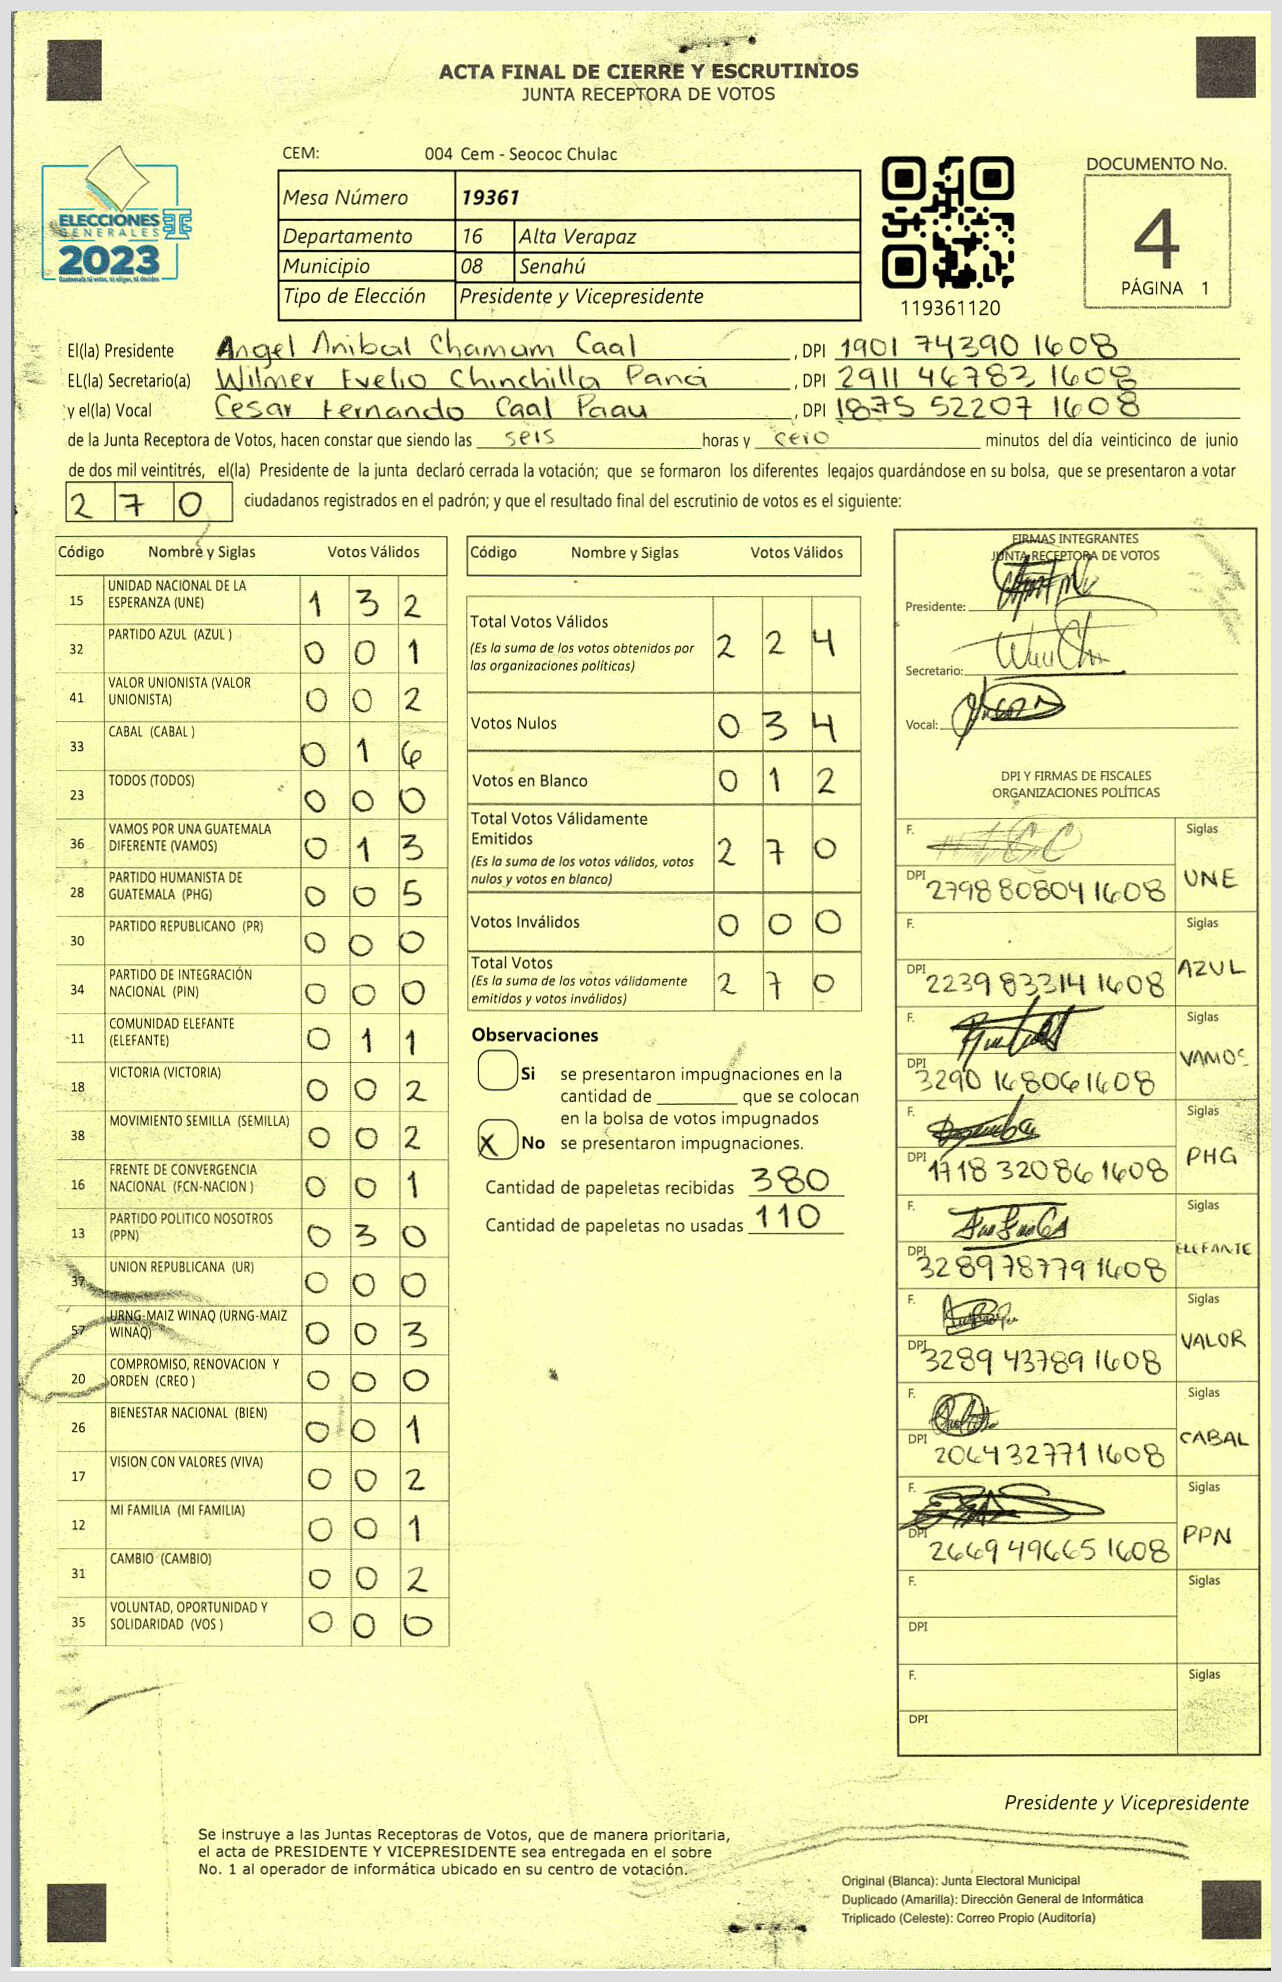 ACTA FINAL DE CIERRE Y ESCRUTINIOS
JUNTA RECEPTORA DE VOTOS
CEM: 004 Cem - Seococ Chulac
ELECCIONES
GENERALES
2023
Mesa Número 19361
Departamento 16 Alta Verapaz
Municipio 08 Senahú
Tipo de Elección Presidente y Vicepresidente
119361120
DOCUMENTO No.
4
PÁGINA 1
El(la) Presidente Angel Anibal Chamam Caal , DPI 1901 74390 1608
EL(la) Secretario(a) Wilmer Evelio Chinchilla Paná , DPI 2911 46783 1608
y el(la) Vocal Cesar Fernando Caal Paau , DPI 1875 52207 1608
de la Junta Receptora de Votos, hacen constar que siendo las seis horas y cero minutos del día veinticinco de junio
de dos mil veintitrés, el(la) Presidente de la junta declaró cerrada la votación; que se formaron los diferentes legajos quardándose en su bolsa, que se presentaron a votar
270 ciudadanos registrados en el padrón; y que el resultado final del escrutinio de votos es el siguiente:
Código Nombre y Siglas Votos Válidos
15 UNIDAD NACIONAL DE LA
ESPERANZA (UNE) 1 3 2
32 PARTIDO AZUL (AZUL ) 0 0 1
41 VALOR UNIONISTA (VALOR
UNIONISTA) 0 0 2
33 CABAL (CABAL ) 0 1 6
23 TODOS (TODOS) 0 0 0
36 VAMOS POR UNA GUATEMALA
DIFERENTE (VAMOS) 0 1 3
28 PARTIDO HUMANISTA DE
GUATEMALA (PHG) 0 0 5
30 PARTIDO REPUBLICANO (PR) 0 0 0
34 PARTIDO DE INTEGRACIÓN
NACIONAL (PIN) 0 0 0
11 COMUNIDAD ELEFANTE
(ELEFANTE) 0 1 1
18 VICTORIA (VICTORIA) 0 0 2
38 MOVIMIENTO SEMILLA (SEMILLA) 0 0 2
16 FRENTE DE CONVERGENCIA
NACIONAL (FCN-NACION ) 0 0 1
13 PARTIDO POLITICO NOSOTROS
(PPN) 0 3 0
37 UNION REPUBLICANA (UR) 0 0 0
57 URNG-MAIZ WINAQ (URNG-MAIZ
WINAQ) 0 0 3
20 COMPROMISO, RENOVACION Y
ORDEN (CREO ) 0 0 0
26 BIENESTAR NACIONAL (BIEN) 0 0 1
17 VISION CON VALORES (VIVA) 0 0 2
12 MI FAMILIA (MI FAMILIA) 0 0 1
31 CAMBIO (CAMBIO) 0 0 2
35 VOLUNTAD, OPORTUNIDAD Y
SOLIDARIDAD (VOS ) 0 0 0
Código Nombre y Siglas Votos Válidos
Total Votos Válidos
(Es la suma de los votos obtenidos por
las organizaciones políticas) 2 2 4
Votos Nulos 0 3 4
Votos en Blanco 0 1 2
Total Votos Válidamente
Emitidos
(Es la suma de los votos válidos, votos
nulos y votos en blanco) 2 7 0
Votos Inválidos 0 0 0
Total Votos
(Es la suma de los votos válidamente
emitidos y votos inválidos) 2 7 0
Observaciones
Si se presentaron impugnaciones en la
cantidad de que se colocan
en la bolsa de votos impugnados
X No se presentaron impugnaciones.
Cantidad de papeletas recibidas 380
Cantidad de papeletas no usadas 110
FIRMAS INTEGRANTES
JUNTA RECEPTORA DE VOTOS
Presidente:
Secretario:
Vocal:
DPI Y FIRMAS DE FISCALES
ORGANIZACIONES POLÍTICAS
F. Siglas
DPI 2798 80804 1608 UNE
F. Siglas
DPI 2239 83314 1608 AZUL
F. Siglas
DPI 3290 16806 1608 VAMOS
F. Siglas
DPI 1718 32086 1608 PHG
F. Siglas
DPI 3289 78779 1608 ELEFANTE
F. Siglas
DPI 3289 43789 1608 VALOR
F. Siglas
DPI 2064 32771 1608 CABAL
F. Siglas
DPI 2669 49665 1608 PPN
F. Siglas
DPI
F. Siglas
DPI
Presidente y Vicepresidente
Se instruye a las Juntas Receptoras de Votos, que de manera prioritaria,
el acta de PRESIDENTE Y VICEPRESIDENTE sea entregada en el sobre
No. 1 al operador de informática ubicado en su centro de votación.
Original (Blanca): Junta Electoral Municipal
Duplicado (Amarilla): Dirección General de Informática
Triplicado (Celeste): Correo Propio (Auditoría)